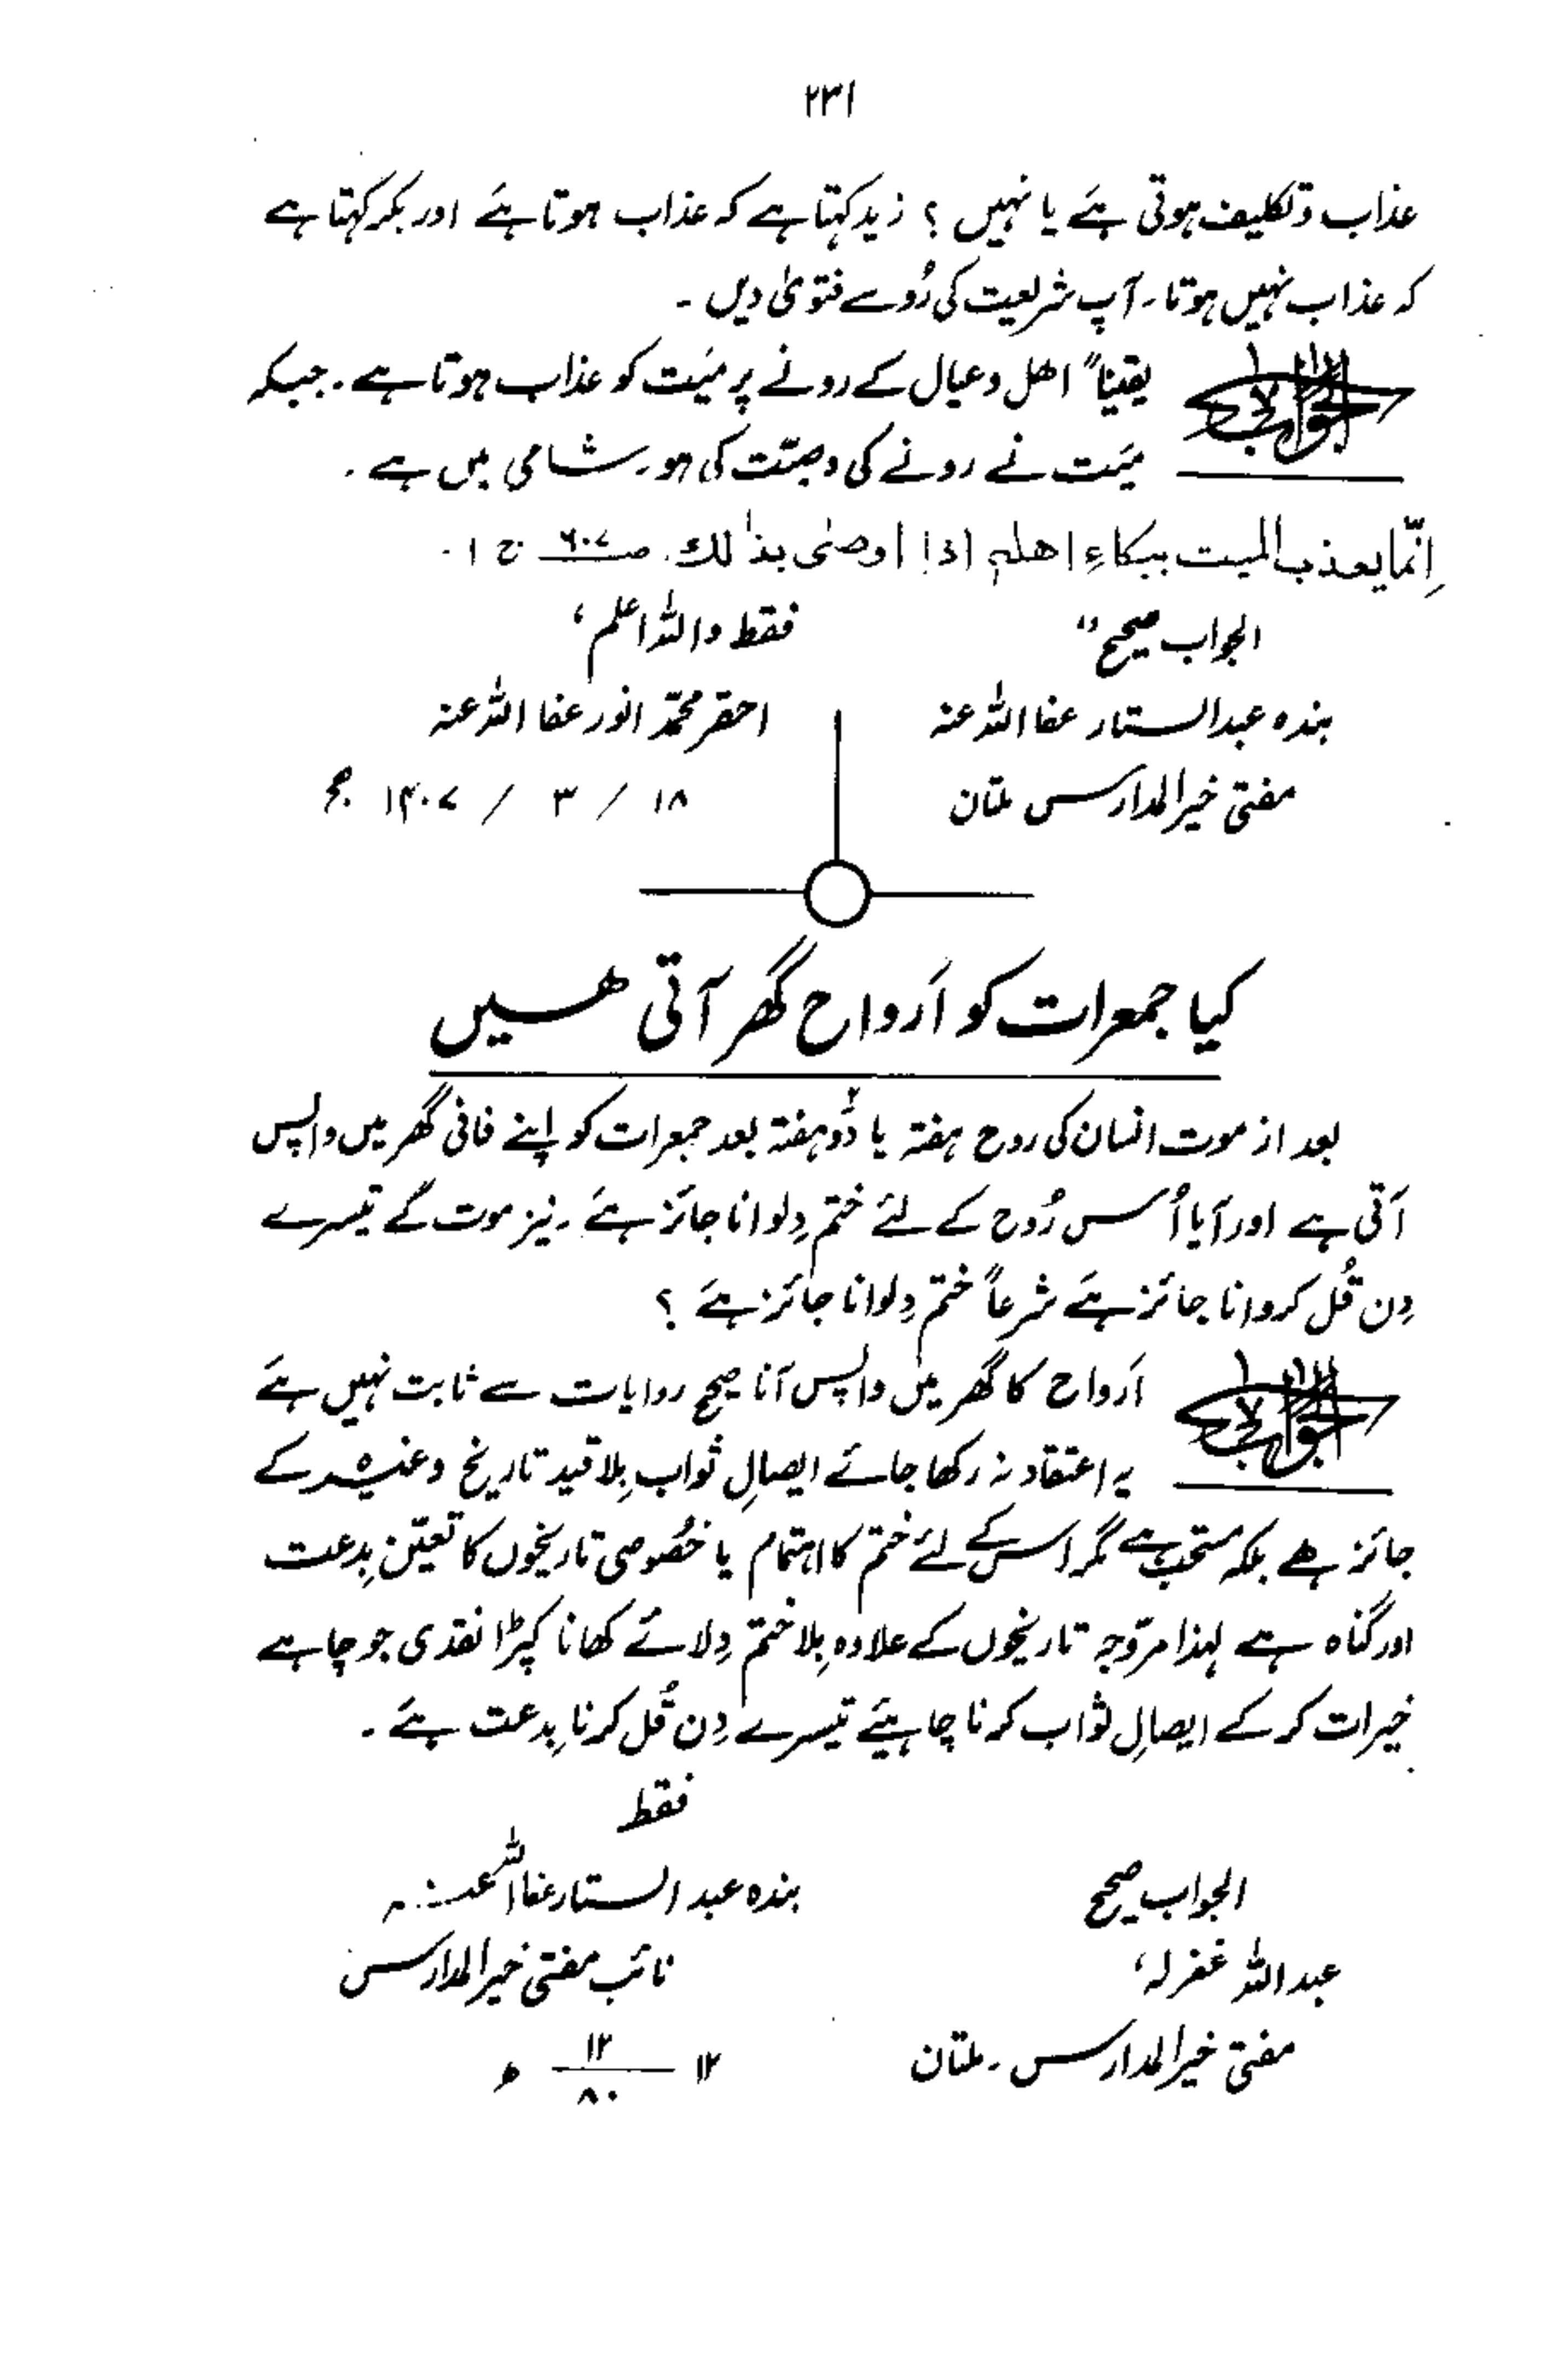 ۲۳۱
عذاب و تکلیف ہوتی ہے یا نہیں ؟ زید کہتا ہے کہ عذاب ہوتا ہے اور بکر کہتا ہے
کہ عذاب نہیں ہوتا۔ آپ شریعت کی رُو سے فتویٰ دیں ۔
الجواب یقیناً اھل و عیال کے رونے پر میّت کو عذاب ہوتا ہے ۔ جبکہ
میّت نے رونے کی وصیّت کی ہو۔ شامی میں ہے ۔
اِنّما یعذب المیت ببکاءِ اھلہٖ اذا اوصٰی بذٰلک ۔ صـ ۶۰۷ ج ۱ ۔
الجواب صحیح"
فقط واللہ اعلم ،
بندہ عبدالستار عفا اللہ عنہ
احقر محمّد انور عفا اللہ عنہ
مفتی خیر المدارس ملتان
۱۸ / ۳ / ۱۴۰۷ ھج
کیا جمعرات کو اَرواح گھر آتی ھیں
بعد از موت انسان کی روح ہفتہ یا دُو ہفتہ بعد جمعرات کو اپنے فانی گھر میں واپس
آتی ہے اور آیا اُس رُوح کے لئے ختم دِلوانا جائز ہے ۔ نیز موت کے تیسرے
دِن قُل کروانا جائز ہے شرعاً ختم دِلوانا جائز ہے ؟
الجواب اَرواح کا گھر میں واپس آنا صحیح روایات سے ثابت نہیں ہے
یہ اعتقاد نہ رکھا جائے ایصالِ ثواب بِلا قید تاریخ وغیرہ کے
جائز ہے بلکہ مستحب ہے مگر اس کے لئے ختم کا اہتمام یا خصُوصی تاریخوں کا تعیّن بِدعت
اور گناہ ہے لہذا مروّجہ تاریخوں کے علاوہ بِلا ختم دِلائے کھانا کپڑا نقدی جو چاہے
خیرات کر کے ایصالِ ثواب کرنا چاہیئے تیسرے دِن قُل کرنا بِدعت ہے ۔
فقط
الجواب صحیح
بندہ عبد الستار عفا اللہ عنہ
عبد اللہ غفرلہ ،
نائب مفتی خیر المدارس
مفتی خیر المدارس ۔ ملتان
۱۲ ۱۲/۸۰ ھ